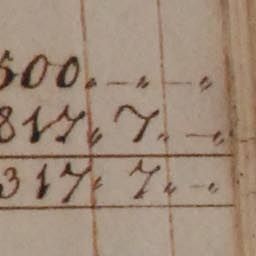 500. – „ – „
817„ 7. – „
317. 7. – „